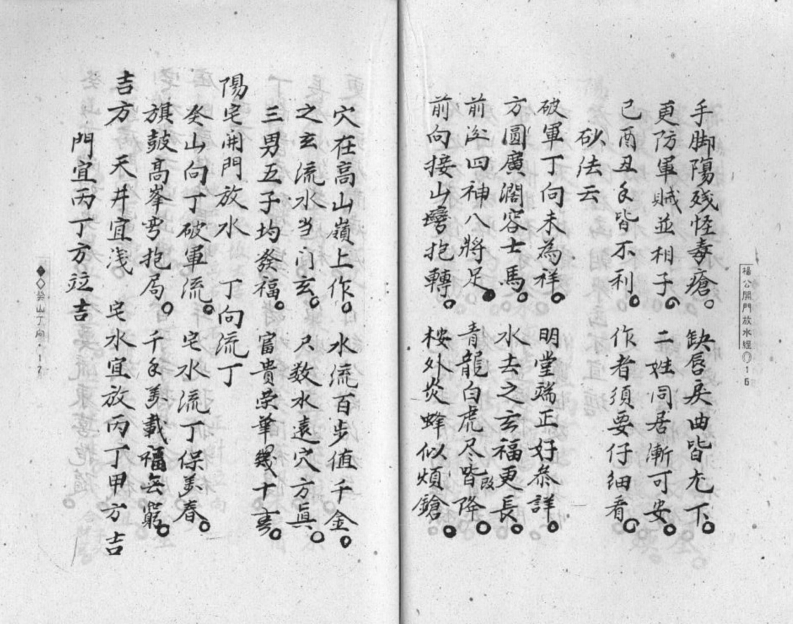 楊公開門放水經◎16
手脚傷殘怪毒瘡。 缺唇戾曲皆尤下。
更防軍賊並相子。 二姓同居漸可安。
己酉丑年皆不利。 作者須要仔細看。
砂法云
破軍丁向未為祥。 明堂端正好恭詳。
方圓廣濶容士馬。 水去之玄福更長。
前迎四神八將足。 青龍白虎尽皆降。
前向接山彎抱轉。 案外炎蜂似煩鎗。
穴在高山嶺上作。 水流百步值千金。
之玄流水当门玄。 只教水遠穴方真。
三男五子均發福。 富貴榮華幾十春。
陽宅開門放水 丁向流丁
癸山向丁破軍流。 宅水流丁保美春。
旗鼓高峯弯抱局。 千年美載福無窮。
吉方 天井宜浅 宅水宜放丙丁甲方吉
門宜丙丁方竝吉
癸山丁向·17